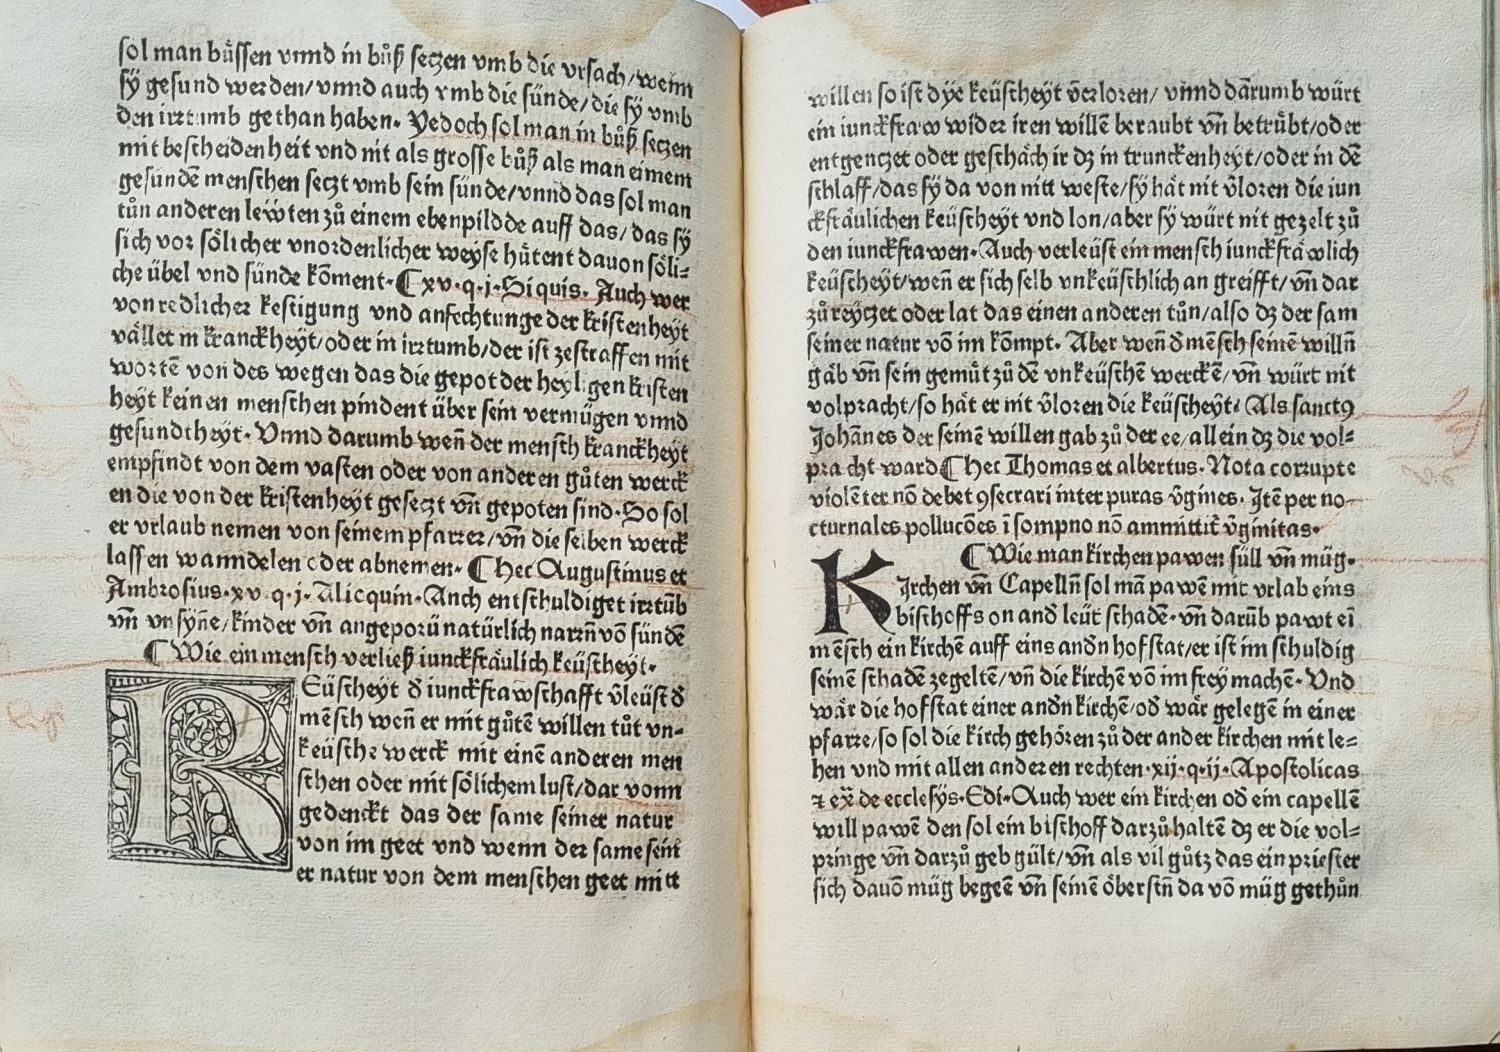 sol man bu̇ssen vnnd in bůß setzen vmb die vrsach/wenn
sÿ gesund werden/vnnd auch vmb die sünde/die sÿ vmb
den irrtumb gethan haben. Yedoch sol man in bůß setzen
mit bescheidenheit vnd nit als grosse bůß als man einem
gesundē menschen setzt vmb sein sünde/vnnd das sol man
tůn anderen lewten zů einem ebenpildde auff das/das sÿ
sich vor sȯlicher vnordenlicher weyse hu̇tent dauon sȯli⸗
che übel vnd sünde kōment. ¶xv.q.j.Si quis. Auch wer
von redlicher kestigung vnd anfechtunge der kristenheÿt
vȧllet in kranckheÿt/oder in irrtumb/der ist zestraffen mit
wortē von des wegen das die gepot der heyligen kristen
heÿt keinen menschen pindent über sein vermügen vnnd
gesundtheÿt. Vnnd darumb wen̄ der mensch kranckheÿt
empfindt von dem vasten oder von anderen gůten werck
en die von der kristenheÿt gesetzt vn̄ gepoten sind. So sol
er vrlaub nemen von seinem pfarrer/vn̄ die selben werck
lassen wanndelen oder abnemen. ¶hec Augustinus et
Ambrosius.xv.q.j. Alicquin. Auch entschuldiget irrtūb
vn̄ vnsÿn̄e/kinder vn̄ angeporū natürlich narrn̄ vō sündē
¶Wie ein mensch verließ iunckfrȧulich keüscheÿt.
KEüscheÿt d̄ iunckfrawschafft v̄leüst d̄
mēsch wen̄ er mit gůtē willen tůt vn⸗
keüsche werck mit einē anderen men
schen oder mit sȯlichem lust/dar vonn
gedenckt das der same seiner natur
von im geet vnd wenn der same sein
er natur von dem menschen geet mitt
willen so ist dÿe keüscheÿt v̄erloren/ vnnd darumb würt
ein iunckfraw wider iren willē beraubt vn̄ betrübt/oder
entgentzet oder geschȧch ir dz in trunckenheÿt/oder in dē
schlaff/das sÿ da von nitt weste/sÿ hȧt nit v̄loren die iun
ckfrȧulichen keüscheÿt vnd lon/aber sÿ würt nit gezelt zů
den iunckfrawen. Auch verleüst ein mensch iunckfrȧwlich
keüscheÿt/wen̄ er sich selb vnkeüschlich an greifft/vn̄ dar
zů reÿtzet oder lat das einen anderen tůn/also dz der sam
seiner natur vō im kōmpt. Aber wen̄ d̄ mēsch seinē willn̄
gȧb vn̄ sein gemu̇t zů dē vnkeüschē werckē/vn̄ würt nit
volpracht/so hȧt er nit v̄loren die keüscheÿt. Als sanctꝯ
Johānes der seinē willen gab zů der ee/allein dz die vol⸗
pracht ward ¶hec Thomas et albertus. Nota corrupte
violēter nō debet ꝯsecrari inter puras v̄gines. Itē per no
cturnales pollucōes ī sompno nō ammittit̄ v̄ginitas.
¶Wie man kirchen pawen süll vn̄ müg.
KIrchen vn̄ Capelln̄ sol mā pawē mit vrlab eins
bischoffs on and̄ leüt schadē. vn̄ darūb pawt eī
mēsch ein kirchē auff eins andn̄ hofstat/er ist im schuldig
seinē schadē zegeltē/vn̄ die kirchē vō im frey machē. Vnd
wȧr die hofstat einer andn̄ kirchē/od̄ wȧr gelegē in einer
pfarre/so sol die kirch gehȯren zů der ander kirchen mit le⸗
hen vnd mit allen anderen rechten.xij.q.ij.Apostolicas
⁊ ex̄ de ecclesÿs.Edi. Auch wer ein kirchen od̄ ein capellē
will pawē den sol ein bischoff darzů haltē dz er die vol⸗
pringe vn̄ darzů geb gült/vn̄ als vil gůtz das ein priester
sich dauō müg begeē vn̄ seinē ȯberstn̄ da vō müg gethůn